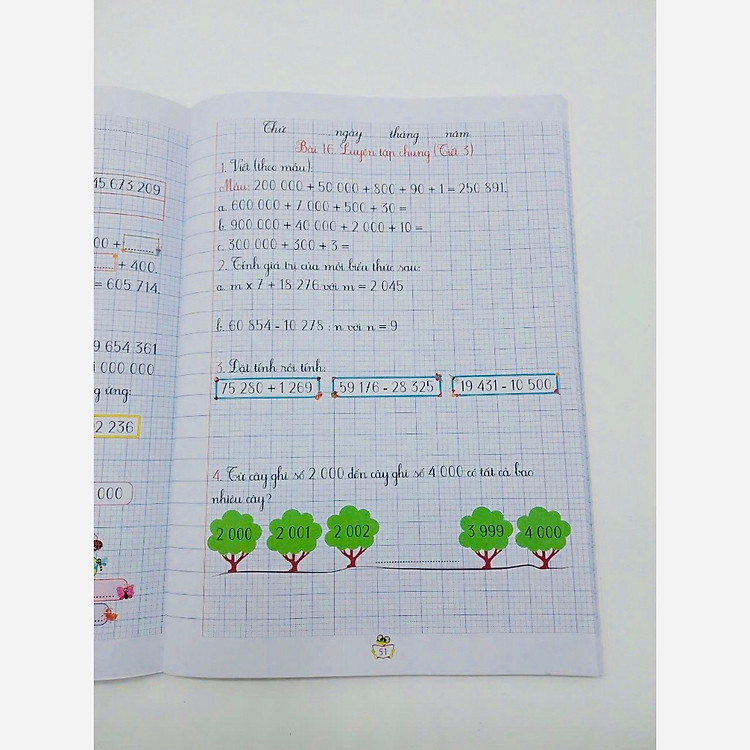 45 673 209
00 +
+ 400.
= 605 714.
9 654 361
1 000 000
g ứng:
2 236
000
Thứ ngày tháng năm
Bài 16. Luyện tập chung (Tiết 3)
1. Viết (theo mẫu):
Mẫu: 200 000 + 50 000 + 800 + 90 + 1 = 250 891.
a. 600 000 + 7 000 + 500 + 30 =
b. 900 000 + 40 000 + 2 000 + 10 =
c. 300 000 + 300 + 3 =
2. Tính giá trị của mỗi biểu thức sau:
a. m x 7 + 18 276 với m = 2 045
b. 60 854 - 10 278 : n với n = 9
3. Đặt tính rồi tính:
75 280 + 1 269 59 176 - 28 325 19 431 - 10 500
4. Từ cây ghi số 2 000 đến cây ghi số 4 000 có tất cả bao
nhiêu cây?
2 000 2 001 2 002 .................... 3 999 4 000
51